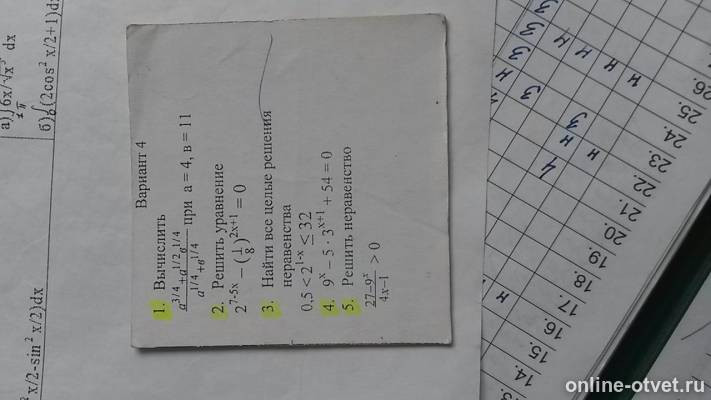 Вариант 4
1. Вычислить
a^3/4 + a^1/2 в^1/4 / a^1/4 + в^1/4 при a = 4, в = 11
2. Решить уравнение
2^7-5x − (1/8)^2x+1 = 0
3. Найти все целые решения
неравенства
0,5 < 2^1-x ≤ 32
4. 9^x − 5 · 3^x+1 + 54 = 0
5. Решить неравенство
27−9^x / 4x−1 > 0
dx
б)∫(2cos² x/2+1)dx
x/2-sin² x/2)dx
14.
15.
16.
17.
18.
19.
20.
21.
22.
23.
24.
25.
26.
н
4
н
3
н
3
н
н
н
3
3
3
online-otvet.ru